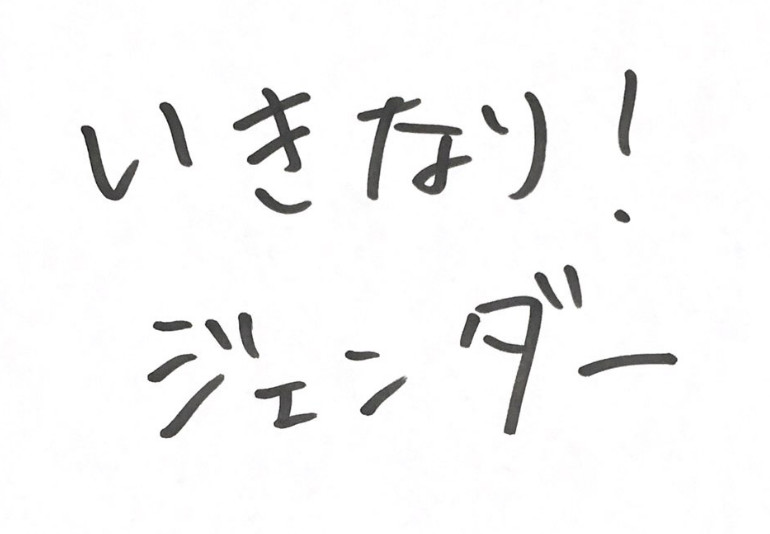 いきなり!
ジェンダー